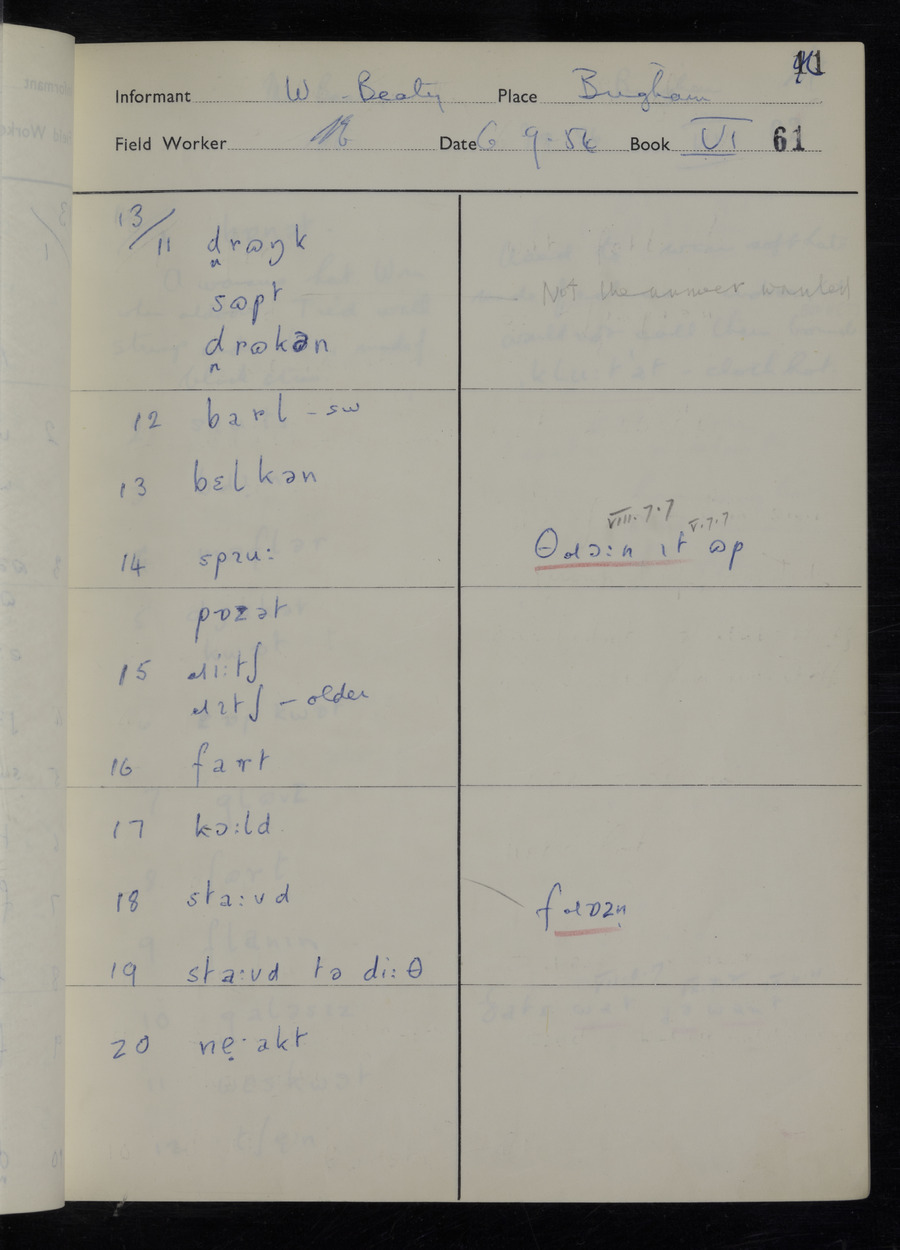 41
Informant W. Beaty Place Brigham
Field Worker Date 6 9.54 Book VI 61
13/11 d̪rɷŋk
sɷpt Not the answer wanted
d̪rɷkən
12 barl - sw
13 bɛlkən
VIII.7.7 V.7.7
14 spɪu: θɹɔ:n ɪt ɷp
pɒzət
15 ɹi:tʃ
ɹɪtʃ - older
16 fart
17 kɔ:ld
18 sta:vd fɹɒzn̩
19 sta:vd tə di:θ
20 nẹ·akt